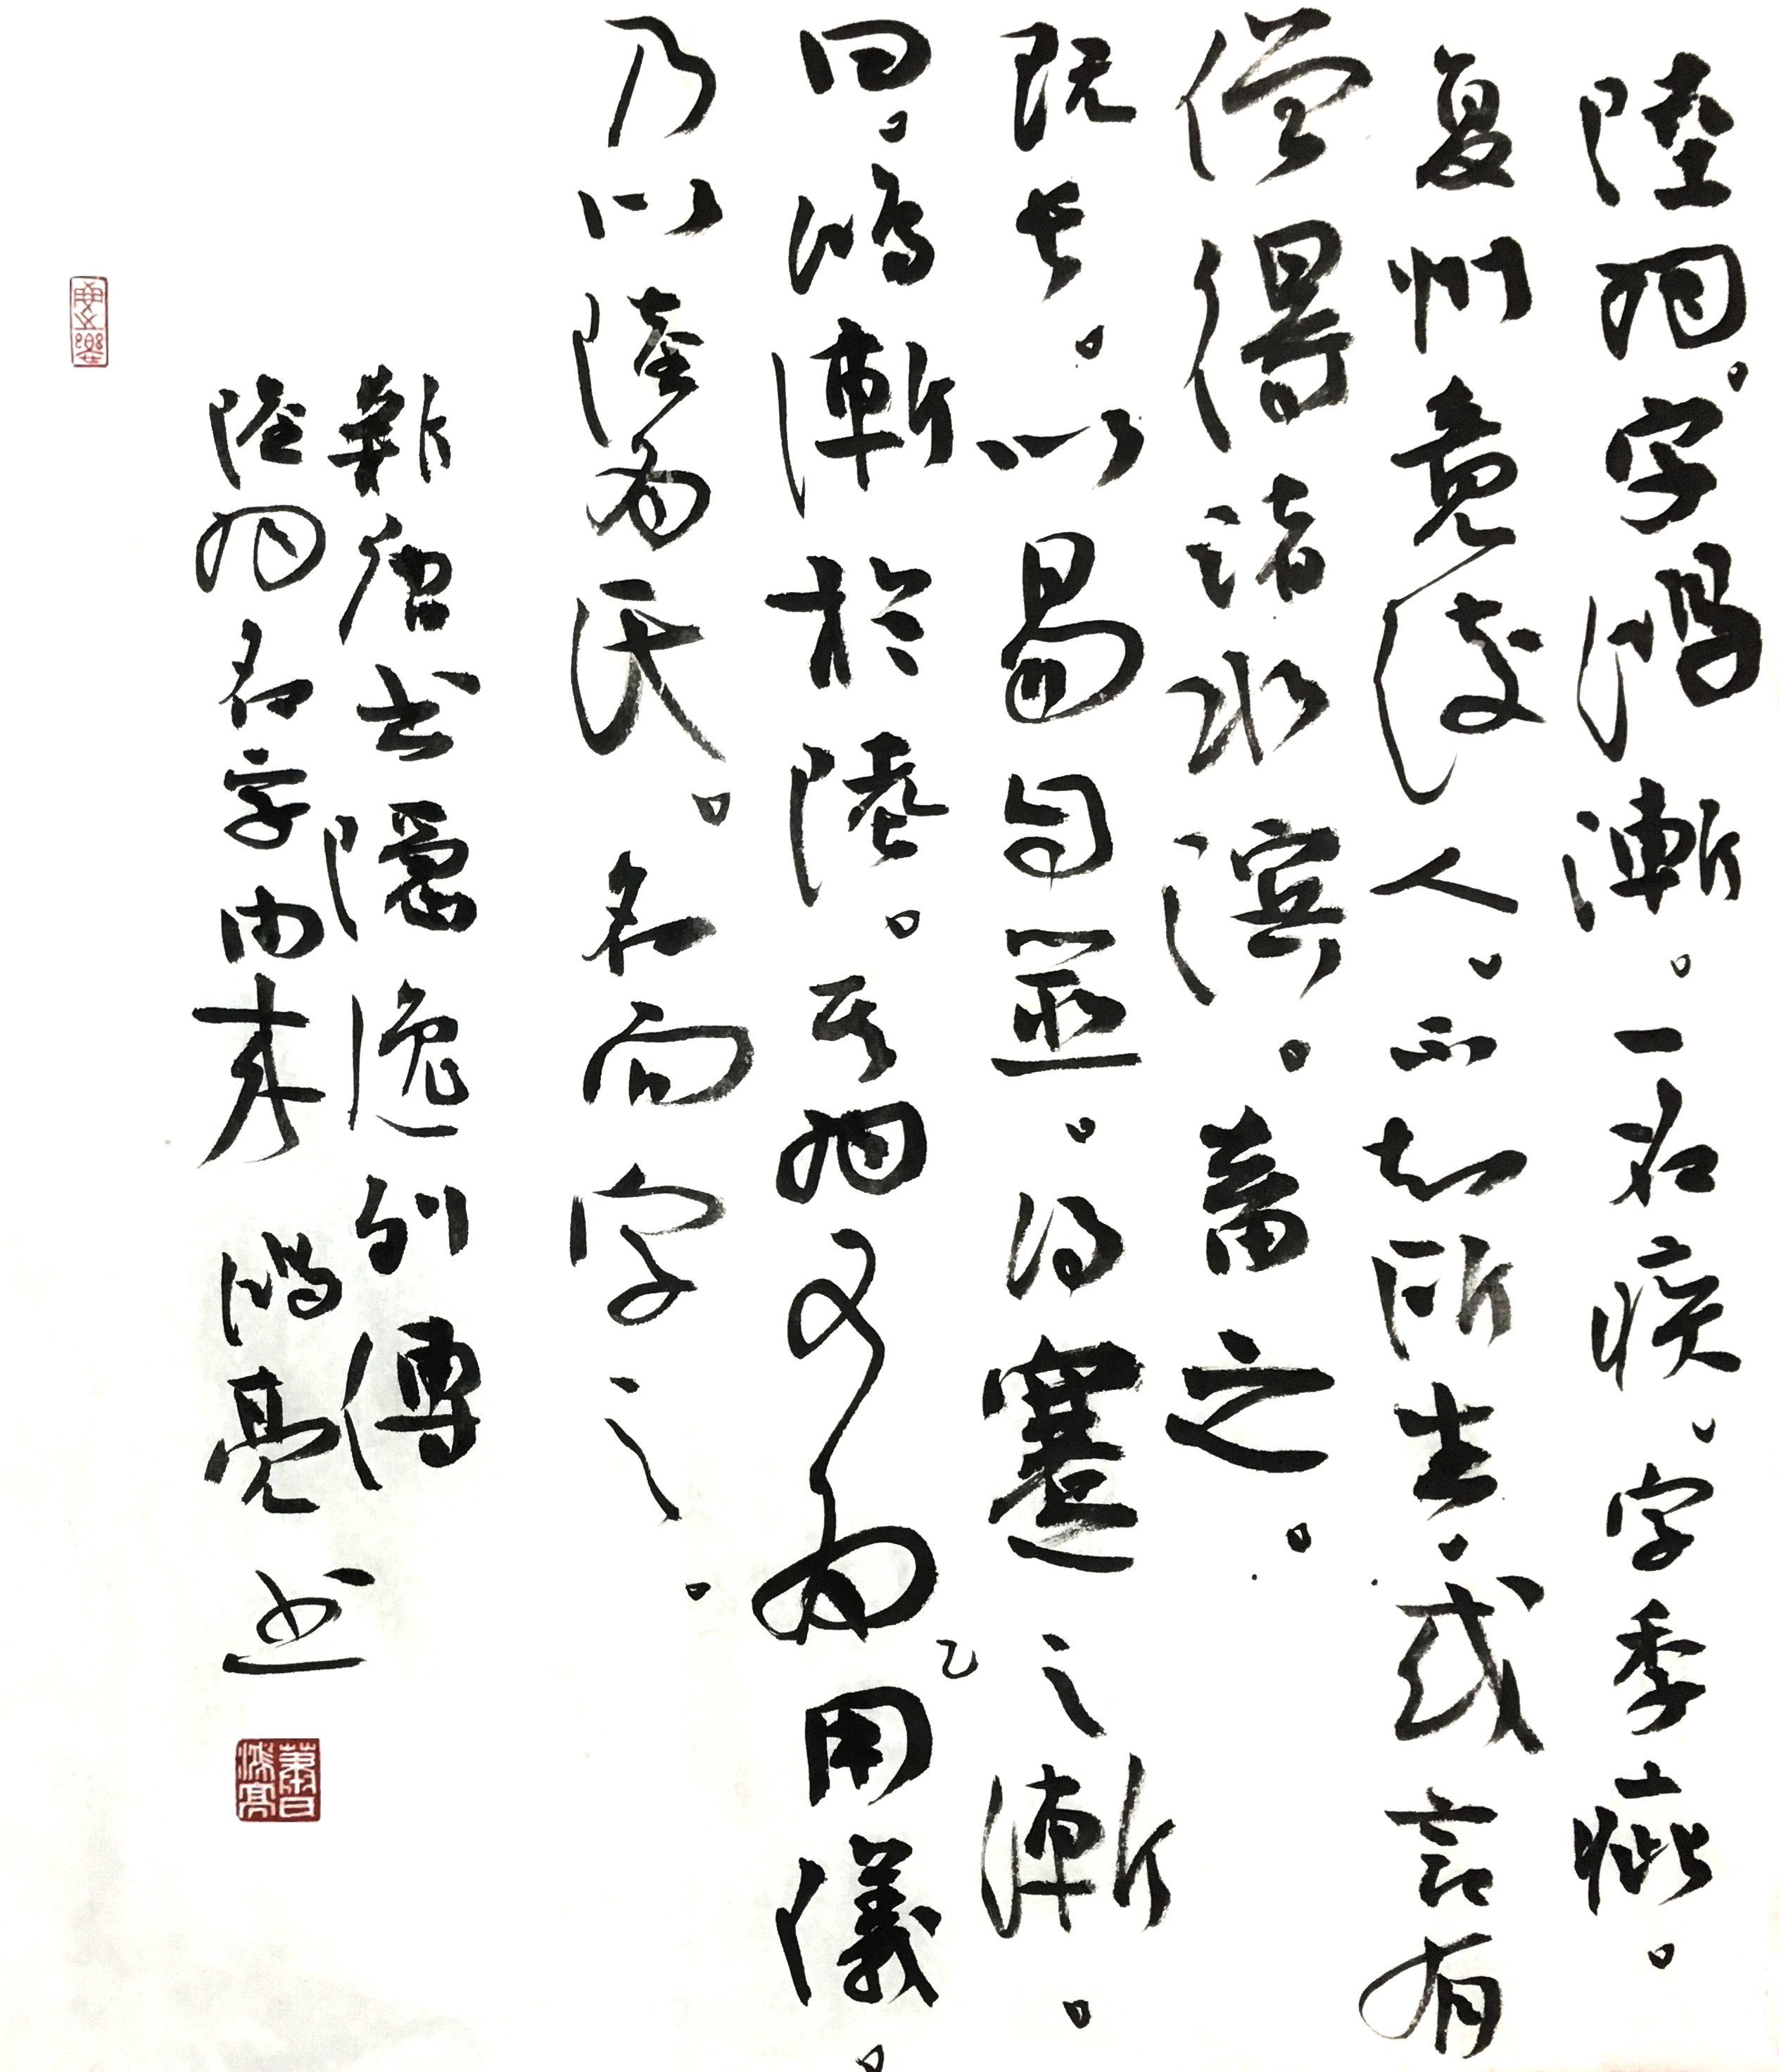 陸羽。字鴻漸。一名疾。字季疵。
复州竟陵人。不知所生。或言有
僧得諸水滨。畜之。
既長。以易自筮。得蹇之漸。
曰。鴻漸於陸。其羽可為用儀。
乃以陸為氏。名而字之。
新唐书隱逸列傳
陸羽名字由来 鴻亮书